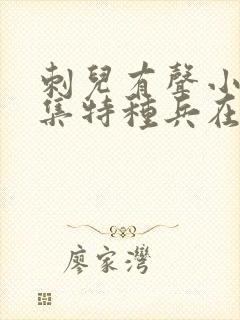 刺兒有聲小
集特種兵在
廖家灣